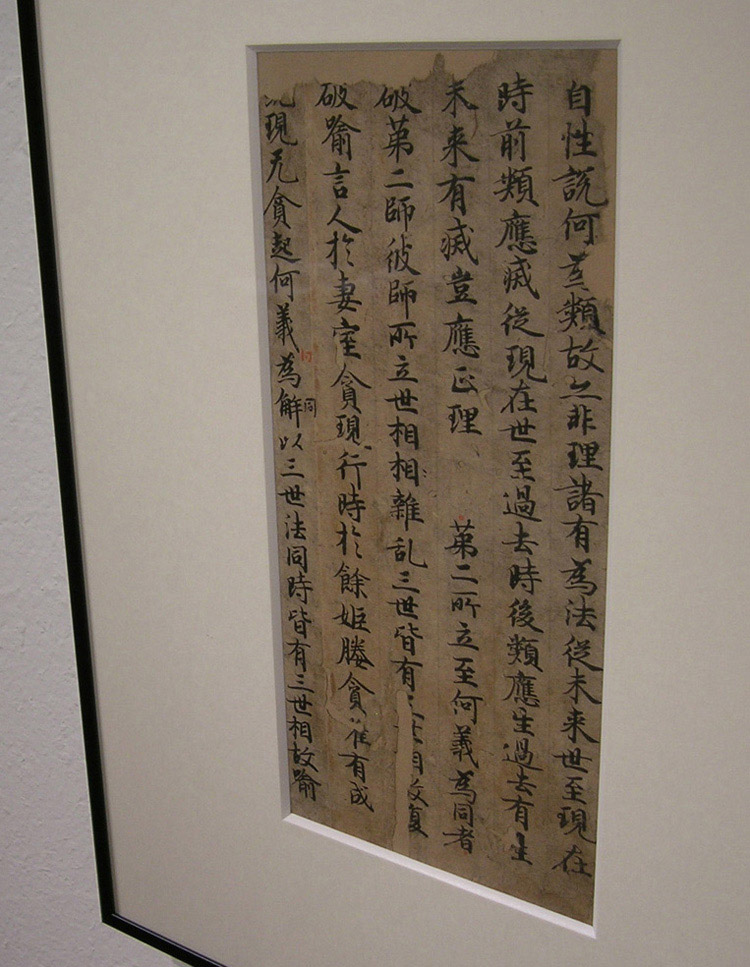 自性說何類故亦非理諸有為法從未来世至現在
時前類應滅從現在世至過去時後類應生過去有生
未来有滅豈應正理　第二所立至何義為同者
破第二師彼師所立世相相雜乱三世皆有三世相故复
破喻言人於妻室貪現行時於餘姬媵貪唯有成
現无貪起何義為解同以三世法同時皆有三世相故喻